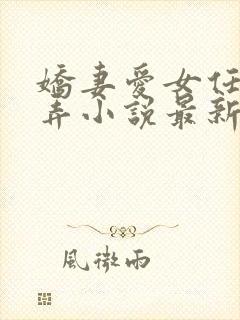 嬌妻愛女任
弄小說最新
風微雨